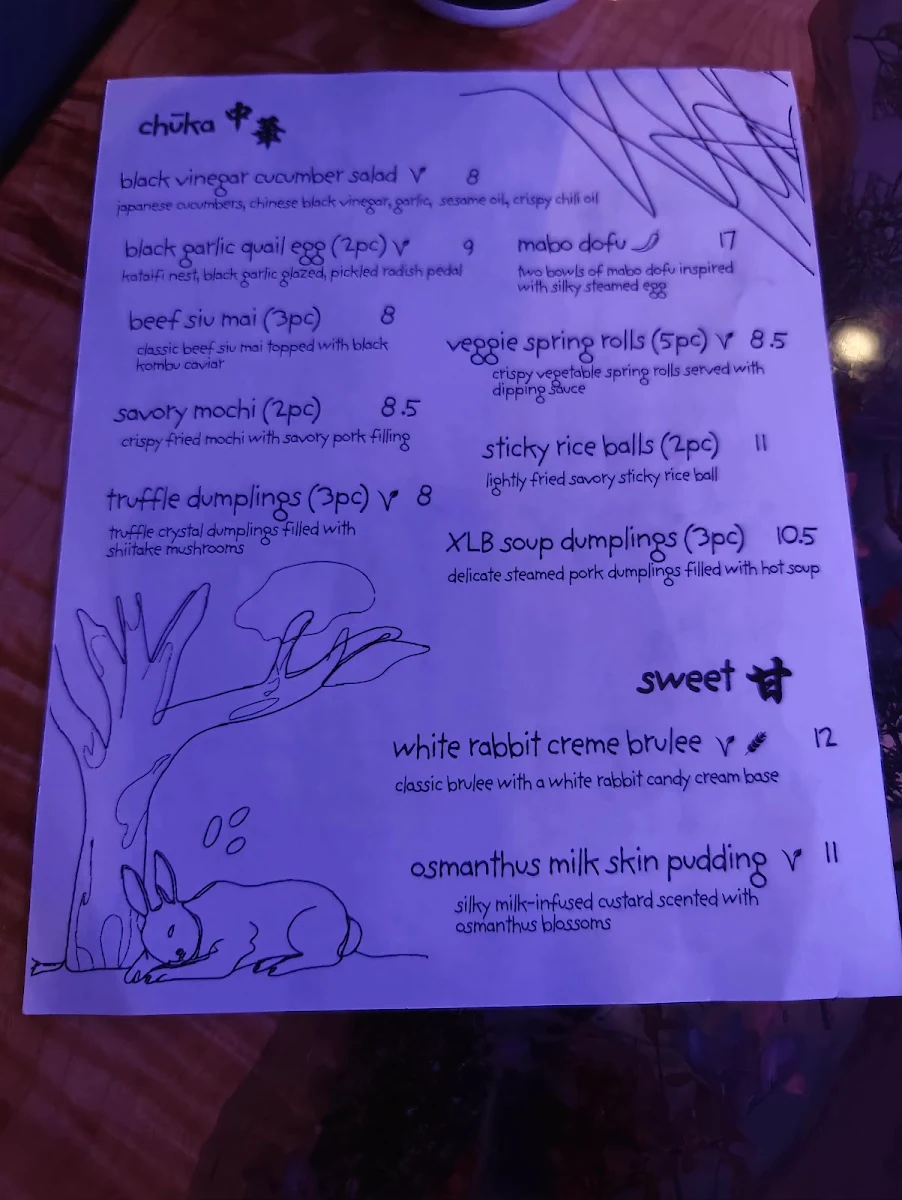 chūka 中華
black vinegar cucumber salad V 8
japanese cucumbers, chinese black vinegar, garlic, sesame oil, crispy chili oil
black garlic quail egg (2pc) V 9
kataifi nest, black garlic glazed, pickled radish pedal
mabo dofu 17
two bowls of mabo dofu inspired
with silky steamed egg
beef siu mai (3pc) 8
classic beef siu mai topped with black
kombu caviar
veggie spring rolls (5pc) V 8.5
crispy vegetable spring rolls served with
dipping sauce
savory mochi (2pc) 8.5
crispy fried mochi with savory pork filling
sticky rice balls (2pc) 11
lightly fried savory sticky rice ball
truffle dumplings (3pc) V 8
truffle crystal dumplings filled with
shiitake mushrooms
XLB soup dumplings (3pc) 10.5
delicate steamed pork dumplings filled with hot soup
sweet 甘
white rabbit creme brulee V 12
classic brulee with a white rabbit candy cream base
osmanthus milk skin pudding V 11
silky milk-infused custard scented with
osmanthus blossoms